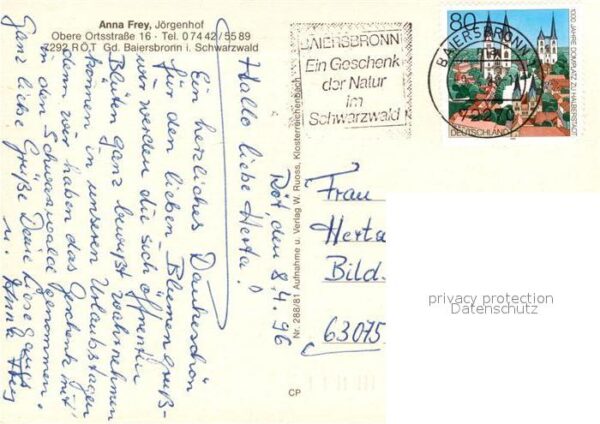 Anna Frey, Jörgenhof
Obere Ortsstraße 16 · Tel. 0 74 42 / 55 89
7292 RÖT Gd. Baiersbronn i. Schwarzwald
BAIERSBRONN
Ein Geschenk
der Natur
im
Schwarzwald
BAIERSBRONN 1
80
1000 JAHRE DOMPLATZ ZU HALBERSTADT
DEUTSCHLAND
Röt, den 8.4.96
Hallo liebe Herta!
Ein herzliches Dankeschön
für den lieben Blumengruß-
wir werden die sich öffnenden
Blüten ganz bewußt wahrnehmen
können in unseren Urlaubstagen
denn wir haben das Geschenk mit
in den Schwarzwald genommen.
Ganz liebe Grüße Deine
u. Anna Frey
Nr. 288/81 Aufnahme u. Verlag W. Ruoss, Klosterreichenbach
CP
Frau
Herta
Bild
63075
privacy protection
Datenschutz